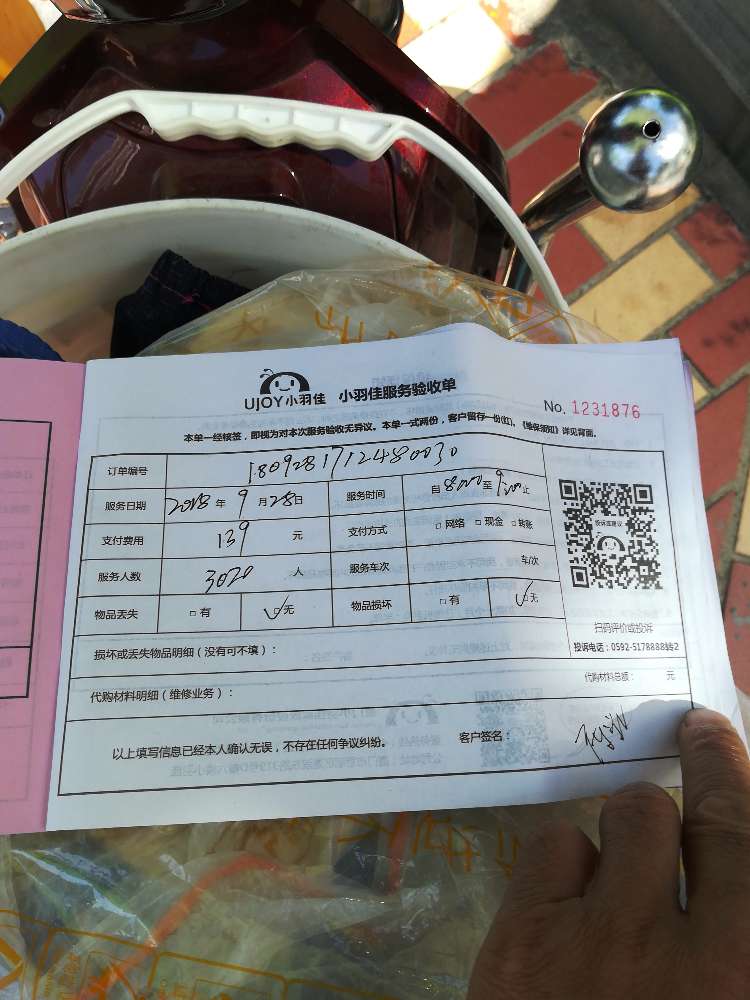 UJOY小羽佳 小羽佳服务验收单
No. 1231876
本单一经核签，即视为对本次服务验收无异议。本单一式两份，客户留存一份(红)。《维保须知》详见背面。
订单编号 1809281712480030
服务日期 2018年 9月28日 服务时间 自8:00至9:00止
支付费用 139 元 支付方式 □网络 □现金 □转账
服务人数 3020 人 服务车次 车/次
物品丢失 □有 ☑无 物品损坏 □有 ☑无
投诉或建议
扫码评价或投诉
损坏或丢失物品明细（没有可不填）：
投诉电话：0592-5178888转2
代购材料明细（维修业务）：
代购材料总额： 元
以上填写信息已经本人确认无误，不存在任何争议纠纷。 客户签名：